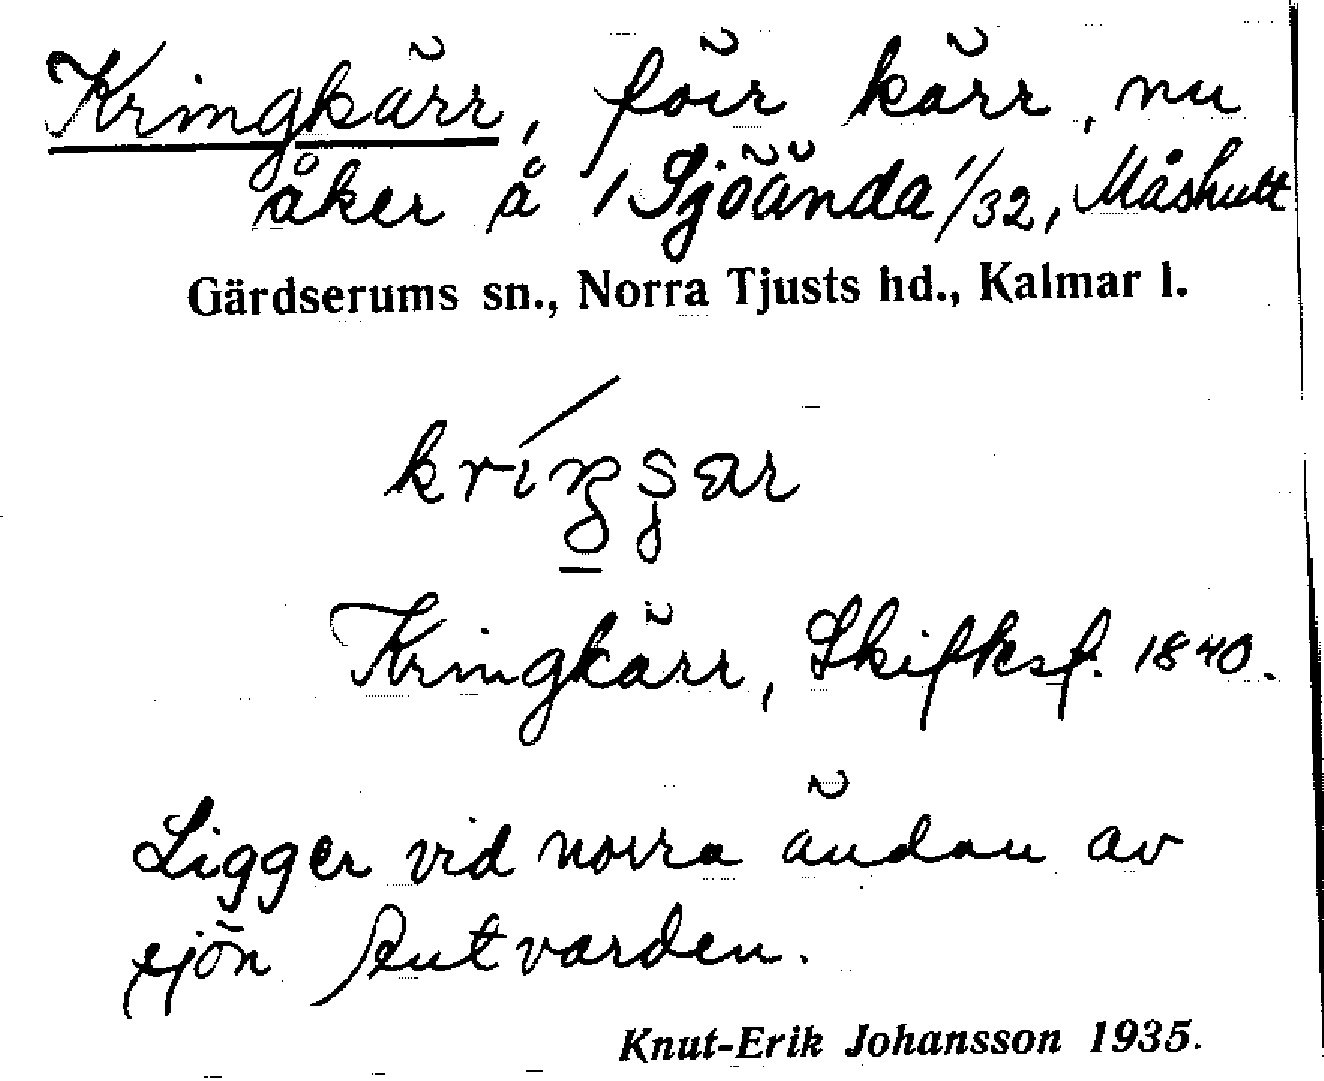 Kringkärr, förr kärr, nu
åker å Sjöända 1/32, Måshult
Gärdserums sn., Norra Tjusts hd., Kalmar l.
Kringkärr, Skifksf. 1840.
Ligger vid norra ändan av
sjön Slutvarden.
Knut-Erik Johansson 1935.